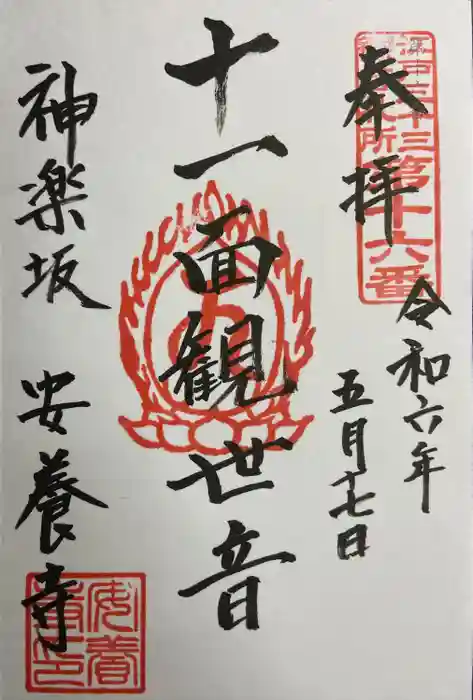 奉拝
第十六番
令和六年
五月十七日
十一面観世音
神楽坂 安養寺